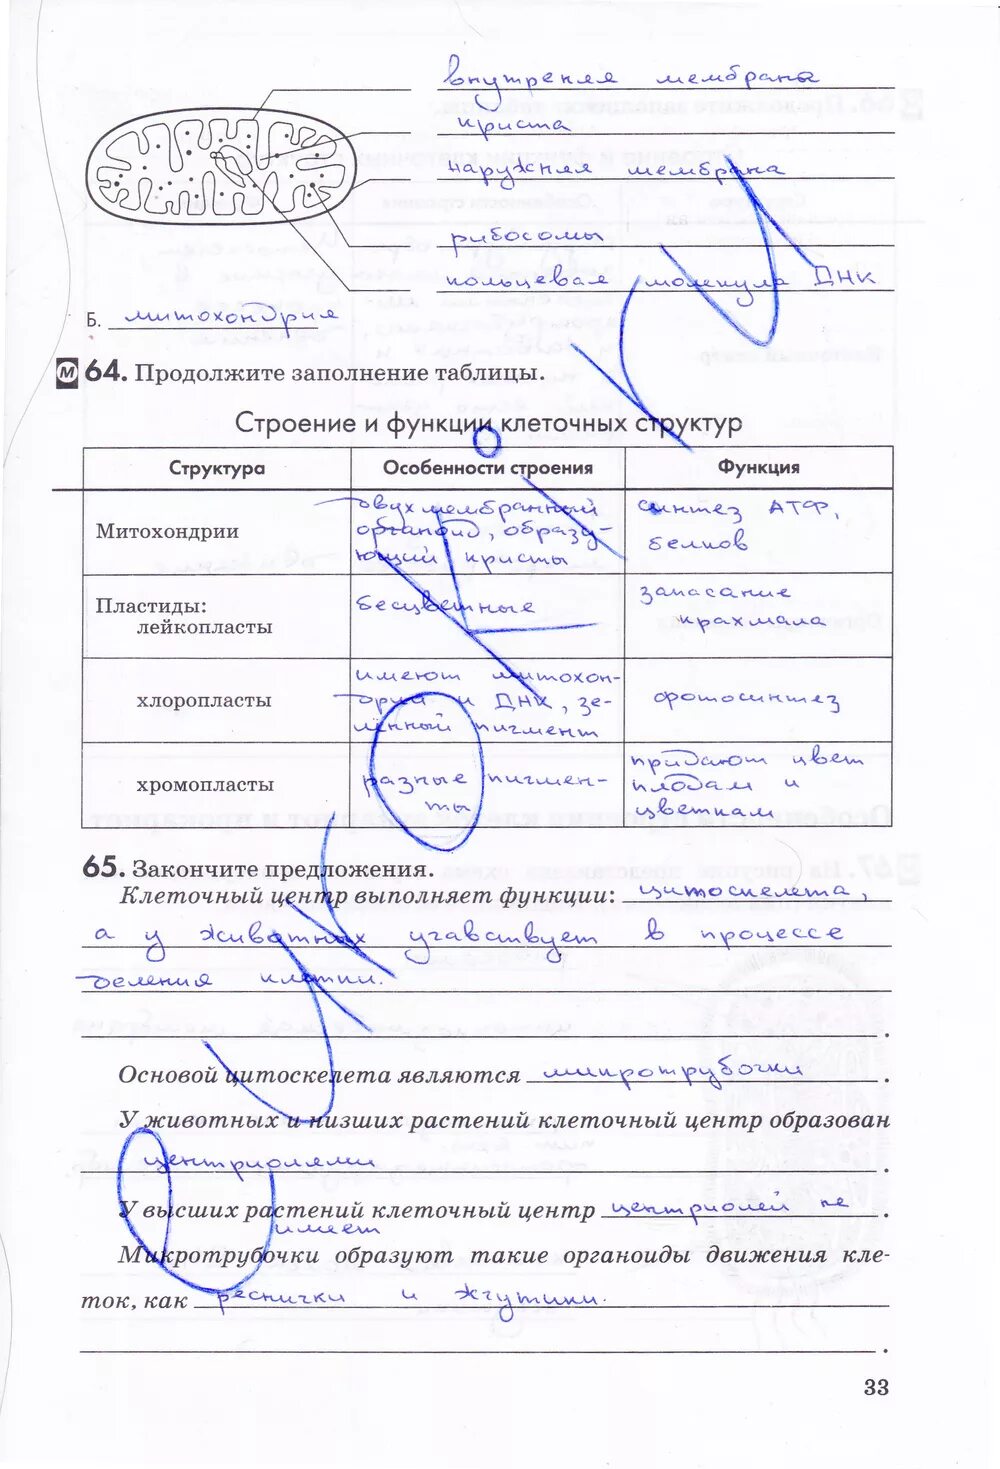 внутреняя мембрана
криста
наружняя мембрана
рибосомы
кольцевая молекула ДНК
Б. митохондрия
М 64. Продолжите заполнение таблицы.
Строение и функции клеточных структур
Структура Особенности строения Функция
Митохондрии двухмембранный органоид, образующий кристы синтез АТФ, белков
Пластиды:
лейкопласты бесцветные запасание крахмала
хлоропласты имеют митохондрии и ДНК, зелённый пигмент фотосинтез
хромопласты разные пигменты придают цвет плодам и цветкам
65. Закончите предложения.
Клеточный центр выполняет функции: цитоскелета,
а у животных учавствует в процессе
деления клетки.
Основой цитоскелета являются микротрубочки.
У животных и низших растений клеточный центр образован
центриолями.
У высших растений клеточный центр центриолей не
имеет.
Микротрубочки образуют такие органоиды движения кле-
ток, как реснички и жгутики.
33